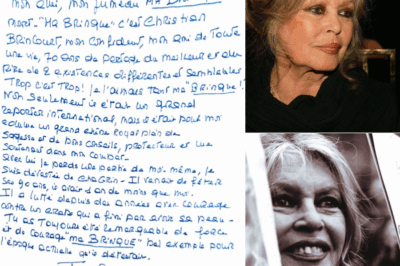 mon ami, mon jumeau MA
mort. "MA Brinque" c'est Christian
BRINCOURT, mon confident, mon ami de toute
une vie, 70 ans de partage du meilleur et du
pire de 2 existences différentes et semblables
Trop c'est Trop! Je l'aimais tant ma "BRINQUE"!
Non seulement il était un grand
reporter international, mais il était pour moi
comme un grand chêne Royal plein de
Sagesse et de bons conseils, protecteur et me
soutenant dans mon combat.
Avec lui je perds une partie de moi-même, je
suis dévastée de chagrin - Il venait de fêter
ses 90 ans, 1 an de moins que moi.
Il a lutté depuis des années avec courage
contre un qui a fini par avoir sa peau -
Tu as toujours été remarquable de force
et de courage "ma BRINQUE" bel exemple pour
l'époque actuelle qui